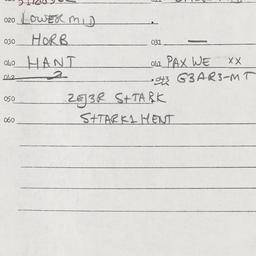 020 LOWER MID
030 HORB 031 —
040 HANT 041 PAX WE XX
042 2 043 G3AR3-MT
050 2EJ3R S+TARK
060 S+TARK1 HENT